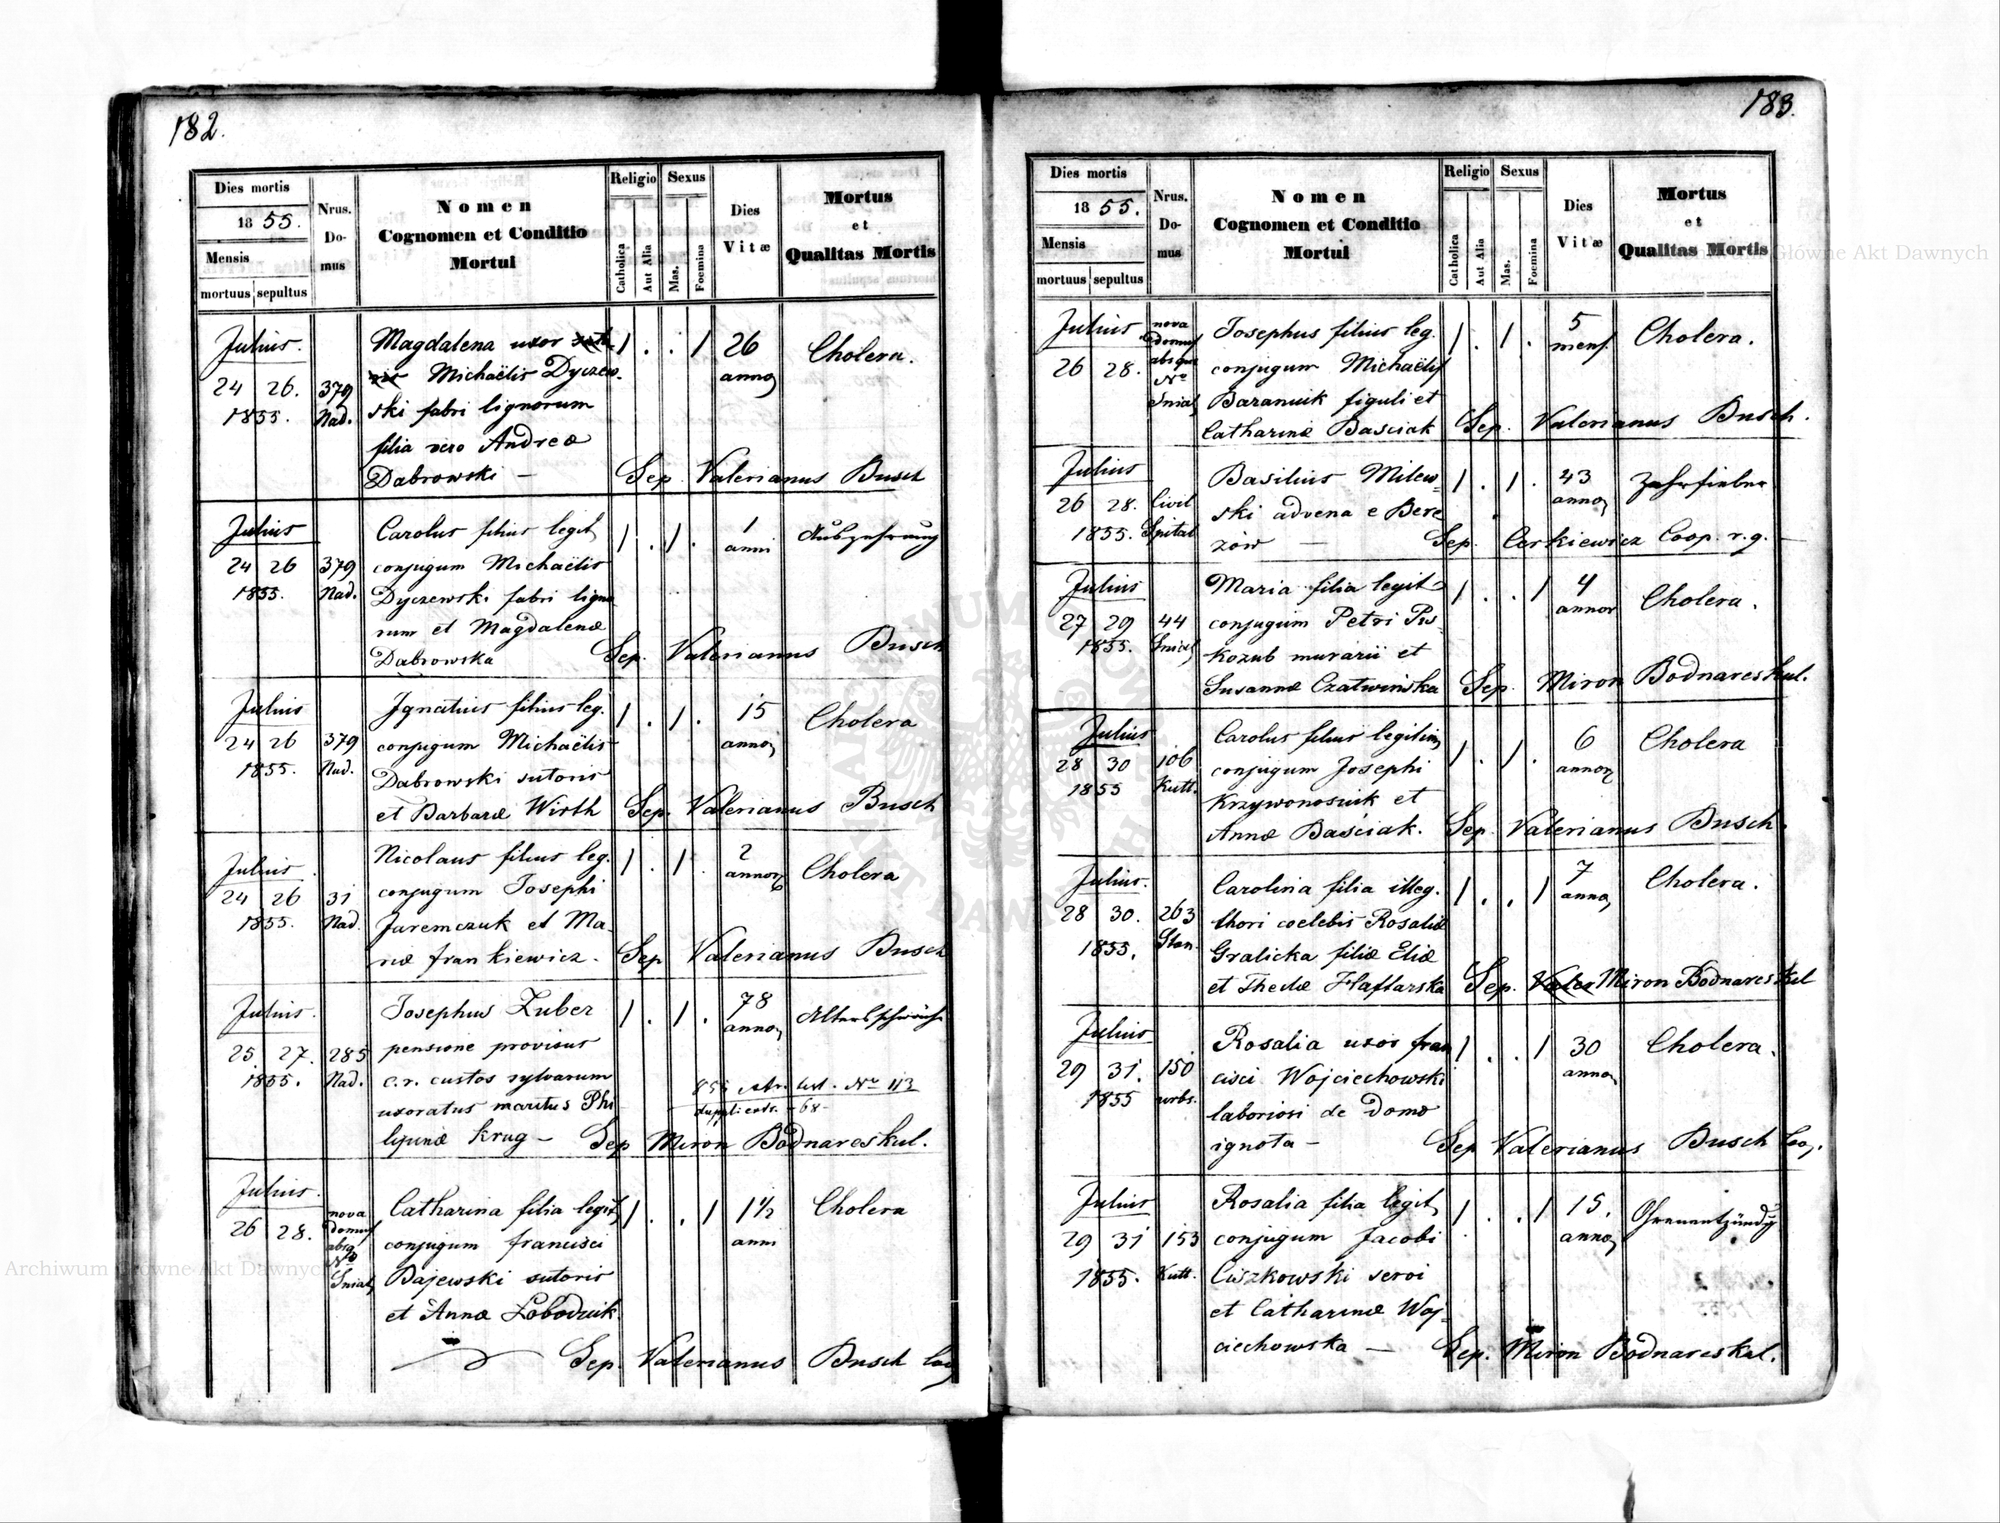 182.
Dies mortis
1855.
Mensis
mortuus sepultus
Nrus.
Do-
mus
Nomen
Cognomen et Conditio
Mortui
Religio
Catholica
Aut Alia
Sexus
Mas.
Foemina
Dies
Vitæ
Mortus
et
Qualitas Mortis
Julius.
24 26.
1855.
379
Nad.
Magdalena uxor
Michaëlis Dyczew-
ski fabri lignorum
filia vero Andreæ
Dabrowski —
1 . . 1
26
annor
Cholera.
Sep. Valerianus Busch
Julius
24 26
1855.
379
Nad.
Carolus filius legit
conjugum Michaëlis
Dyczewski fabri ligno
rum et Magdalenæ
Dabrowska
1 . 1 .
1
anni
Auszehrung
Sep. Valerianus Busch
Julius
24 26
1855.
379
Nad.
Ignatius filius leg.
conjugum Michaëlis
Dabrowski sutoris
et Barbaræ Wirth
1 . 1 .
15
annor
Cholera
Sep. Valerianus Busch
Julius
24 26
1855.
31
Nad.
Nicolaus filius leg.
conjugum Josephi
Juremczuk et Ma-
riæ frankiewicz.
1 . 1 .
2
annor
Cholera
Sep. Valerianus Busch
Julius.
25 27.
1855.
285
Nad.
Josephus Zuber
pensione provisus
c. r. custos sylvarum
uxoratus maritus Phi
lipinæ Krug —
1 . 1 .
78
annor
Altersschwäche
855 Nr. 113
68
Sep Miron Bodnareskul.
Julius.
26 28.
nova
domus
absq
No
Sniat
Catharina filia legit
conjugum francisci
Bajewski sutoris
et Annæ Łoboduik.
1 . . 1
1½
anni
Cholera
Sep. Valerianus Busch Coop
183.
Dies mortis
1855.
Mensis
mortuus sepultus
Nrus.
Do-
mus
Nomen
Cognomen et Conditio
Mortui
Religio
Catholica
Aut Alia
Sexus
Mas.
Foemina
Dies
Vitæ
Mortus
et
Qualitas Mortis
Julius
26 28.
nova
domus
absque
No
Sniat
Josephus filius leg.
conjugum Michaëlis
Baraniuik figuli et
Catharinæ Basciak
1 . 1 .
5
mens.
Cholera.
Sep. Valerianus Busch.
Julius
26 28.
1855.
Civil
Spital
Basilius Milew-
ski advena e Bere
zów —
1 . 1 .
43
annor
Zehrfieber
Sep. Cerkiewicz Coop. r. g. —
Julius
27 29
1855.
44
Sniat
Maria filia legit
conjugum Petri Pis-
kozub murarii et
Susannæ Czatwińska
1 . . 1
4
annor
Cholera.
Sep. Miron Bodnareskul.
Julius
28 30
1855
106
Kutt.
Carolus filius legitim
conjugum Josephi
Krzywonosiuik et
Annæ Baściak.
1 . 1 .
6
annor
Cholera
Sep. Valerianus Busch.
Julius.
28 30.
1855.
263
Stan.
Carolina filia illeg.
thori coelebis Rosaliæ
Gralicka filiæ Eliæ
et Theclæ Haftarska
1 . . 1
7
annor
Cholera.
Sep. Valer Miron Bodnareskul
Julius
29 31.
1855
150
urbs.
Rosalia uxor fran
cisci Wojciechowski
laboriosi de domo
ignota —
1 . . 1
30
annor
Cholera.
Sep Valerianus Busch Coo.
Julius
29 31
1855.
153
Kutt.
Rosalia filia legit
conjugum Jacobi
Ciszkowski servi
et Catharinæ Woj-
ciechowska —
1 . . 1
15.
annor
Ohrenentzündg
Sep. Miron Bodnareskul.
Archiwum Główne Akt Dawnych
Główne Akt Dawnych